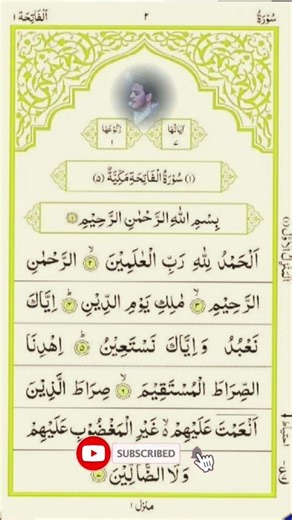 اَلْفَاتِحَة ١
٢
سُوْرَةُ
اٰيَاتُهَا ٧
رُكُوْعُهَا ١
(١) سُوْرَةُ الْفَاتِحَةِ مَكِّيَّةٌ (٥)
بِسْمِ اللهِ الرَّحْمٰنِ الرَّحِيْمِ ۝١
اَلْحَمْدُ لِلّٰهِ رَبِّ الْعٰلَمِيْنَ ۝٢ الرَّحْمٰنِ
الرَّحِيْمِ ۝٣ مٰلِكِ يَوْمِ الدِّيْنِ ۝٤ اِيَّاكَ
نَعْبُدُ وَاِيَّاكَ نَسْتَعِيْنُ ۝٥ اِهْدِنَا
الصِّرَاطَ الْمُسْتَقِيْمَ ۝٦ صِرَاطَ الَّذِيْنَ
اَنْعَمْتَ عَلَيْهِمْ ەۙ غَيْرِ الْمَغْضُوْبِ عَلَيْهِمْ
SUBSCRIBED
وَلَا الضَّآلِّيْنَ ۝٧
منزل ١